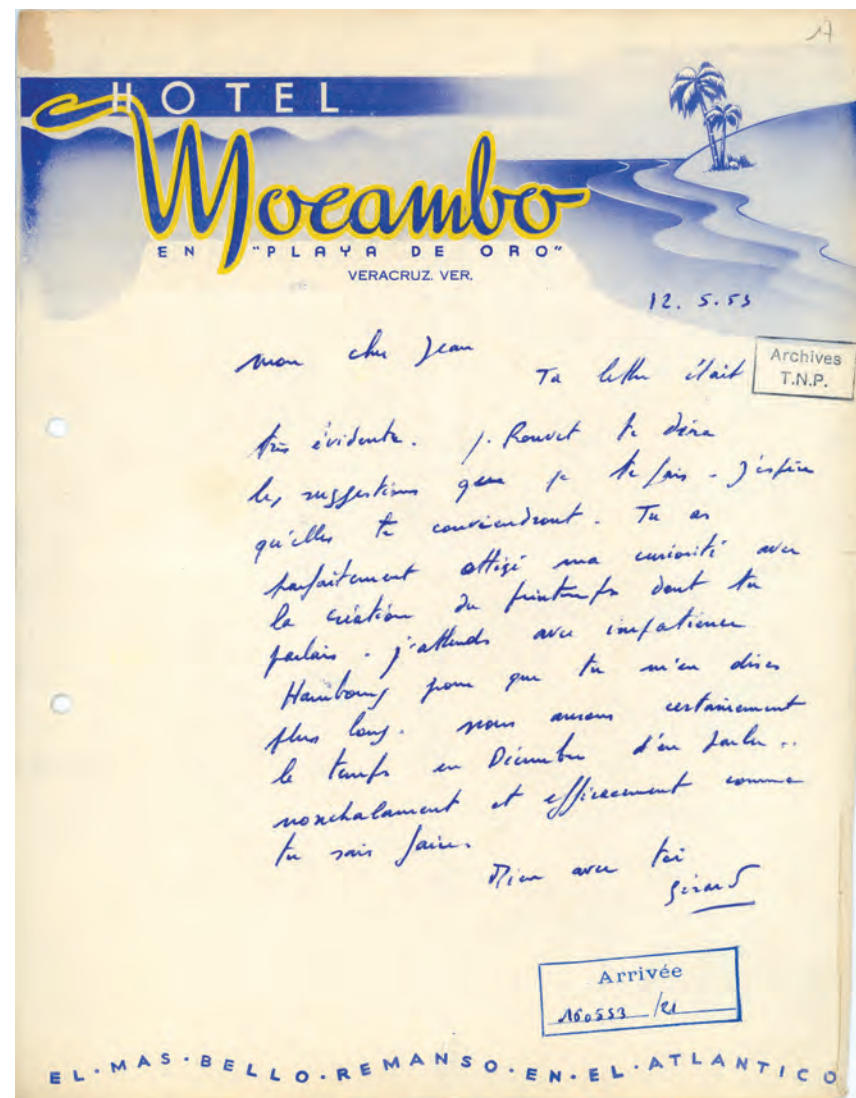 17
HOTEL
Mocambo
EN "PLAYA DE ORO"
VERACRUZ. VER.
12. 5. 53
Archives
T.N.P.
mon cher Jean
Ta lettre était
très évidente. J. Rouvet te dira
les suggestions que je te fais. J'espère
qu'elles te conviendront. Tu as
parfaitement attisé ma curiosité avec
la création du printemps dont tu
parlais. J'attends avec impatience
Hambourg pour que tu m'en dises
plus long. nous aurons certainement
le temps en Décembre d'en parler..
nonchalament et efficacement comme
tu sais faire.
Bien avec toi
Gérard
Arrivée
160553 /21
EL·MAS·BELLO·REMANSO·EN·EL·ATLANTICO